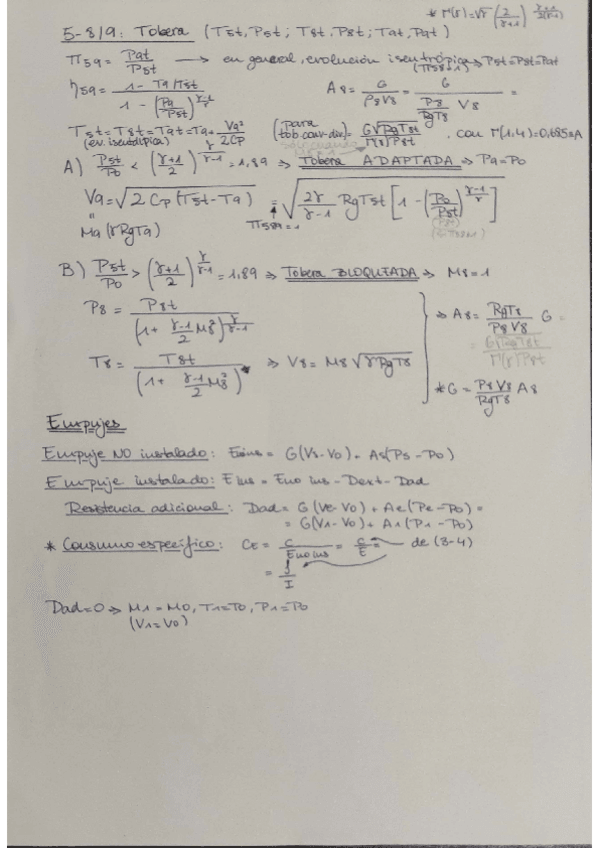 * Γ(γ)=√γ (2/(γ+1))^((γ+1)/2(γ-1))
5-8/9: TOBERA (T5t, P5t; T8t, P8t; T9t, P9t)
π59 = P9t/P5t → en general, evolución isentrópica ⇒ P5t=P8t=P9t
(π58=1)
η59 = (1 - T9/T5t)/(1 - (P9/P5t)^((γ-1)/γ)) A8 = G/(ρ8V8) = G/((P8/RgT8) V8) =
T5t = T8t = T9t = T9 + V9²/2Cp (para tob. conv-div) = G√(RgT8t)/(Γ(γ)P8t), con Γ(1,4)=0,685=A
(ev. isentrópica)
A) P5t/P0 < ((γ+1)/2)^(γ/(γ-1)) = 1,89 ⇒ TOBERA ADAPTADA ⇒ P9=P0
V9 = √(2 Cp (T5t - T9)) = √(2γ/(γ-1) RgT5t [1 - (P0/P5t)^((γ-1)/γ)])
M9(γRgT9) π589=1
B) P5t/P0 > ((γ+1)/2)^(γ/(γ-1)) = 1,89 ⇒ TOBERA BLOQUEADA ⇒ M8=1
P8 = P8t/(1 + (γ-1)/2 M8²)^(γ/(γ-1)) ⇒ A8 = RgT8/(P8V8) G =
= G√(RgT8t)/(Γ(γ)P8t)
T8 = T8t/(1 + (γ-1)/2 M8²) ⇒ V8 = M8 √(γRgT8) * G = P8V8/(RgT8) A8
Empujes
Empuje NO instalado: Enoins = G(Vs-V0) + As(Ps-P0)
Empuje instalado: Eins = Eno ins - Dext - Dad
Resistencia adicional: Dad = G(Ve-V0) + Ae(Pe-P0) =
= G(V1-V0) + A1(P1-P0)
* Consumo específico: CE = c/Enoins = c/E de (3-4)
= f/I
Dad=0 ⇒ M1=M0, T1=T0, P1=P0
(V1=V0)